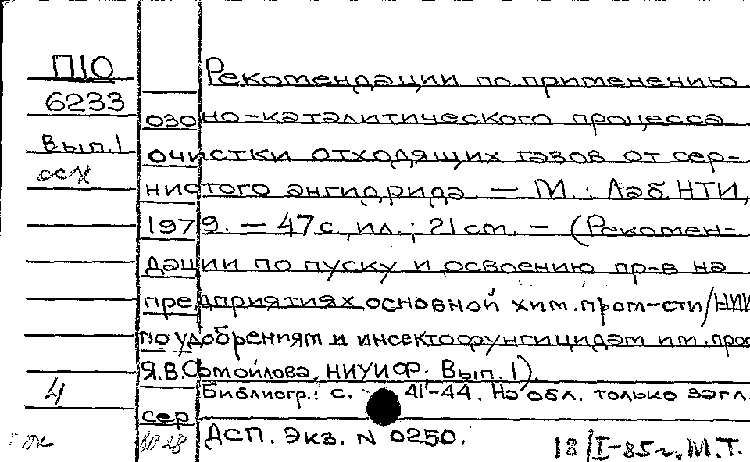 П10
6233
Вып.1
осн
Рекомендации по применению
озоно-каталитического процесса
очистки отходящих газов от сер-
нистого ангидрида — М.: Лаб. НТИ,
1979. — 47 с., ил.; 21 cm. — (Рекомен-
дации по пуску и освоению пр-в на
предприятиях основной хим. пром-сти/НИИ
по удобрениям и инсектофунгицидам им. проф
Я.В. Самойлова, НИУИФ. Вып. 1)
Библиогр.: с. 41-44. На обл. только загл.
4
сер
ДСП. Экз. N 0250.
18/I-85г. М.Т.